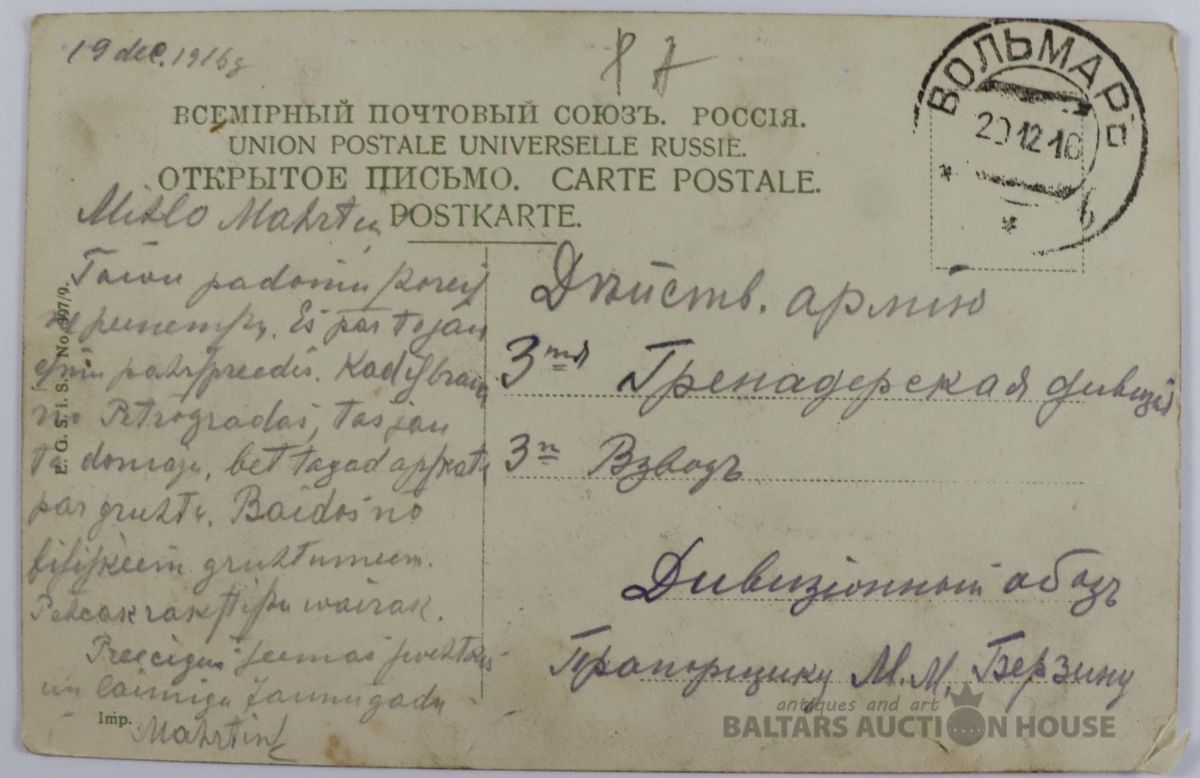 19 dec. 1916g
ВОЛЬМАРЪ
20 12 16
б
ВСЕМІРНЫЙ ПОЧТОВЫЙ СОЮЗЪ. РОССІЯ.
UNION POSTALE UNIVERSELLE RUSSIE.
ОТКРЫТОЕ ПИСЬМО. CARTE POSTALE.
POSTKARTE.
Mihlo Mahrtiņ
Tawu padomu
Es par to jau
esmu pahrspreedis. Kad isbrauz
no Petrogradas, tas jau
ta domaju, bet tagad apskatu
par gruhtu. Baidos no
fisiskeem gruhtumeem.
Pehzak rakstischu wairak.
Preezigus seemas swehtkus
un laimigu Jaunu gadu
Mahrtins
E. G. S. i. S. No. 397/9.
Imp.
Дѣйств. армію
3тья Гренадерская дивизія
3й Взводъ
Дивизіонный обозъ
Прапорщику М. М. Берзину
antiques and art
BALTARS AUCTION HOUSE